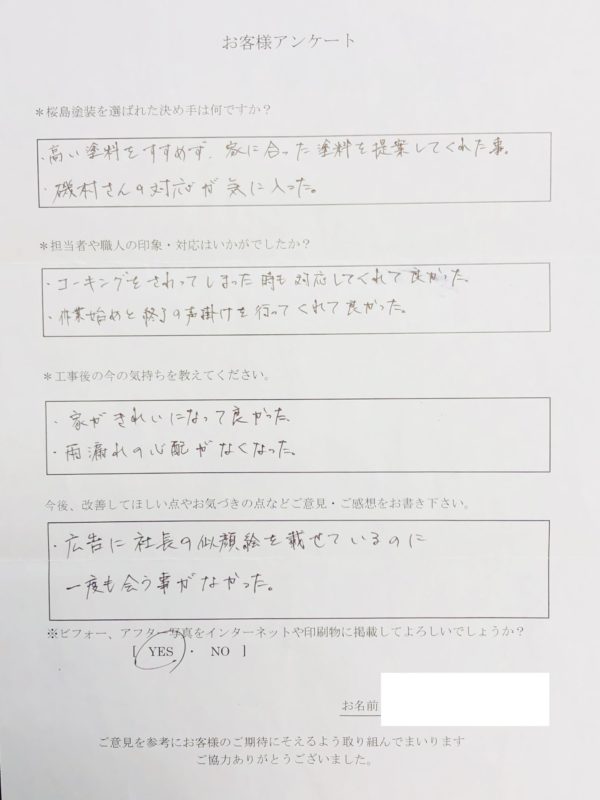 お客様アンケート
＊桜島塗装を選ばれた決め手は何ですか？
・高い塗料をすすめず、家に合った塗料を提案してくれた事。
・磯村さんの対応が気に入った。
＊担当者や職人の印象・対応はいかがでしたか？
・コーキングをさわってしまった時も対応してくれて良かった。
・作業始めと終了の声掛けを行ってくれて良かった。
＊工事後の今の気持ちを教えてください。
・家がきれいになって良かった。
・雨漏れの心配がなくなった。
今後、改善してほしい点やお気づきの点などご意見・ご感想をお書き下さい。
・広告に社長の似顔絵を載せているのに
一度も会う事がなかった。
※ビフォー、アフター写真をインターネットや印刷物に掲載してよろしいでしょうか？
[ YES ・ NO ]
お名前
ご意見を参考にお客様のご期待にそえるよう取り組んでまいります
ご協力ありがとうございました。